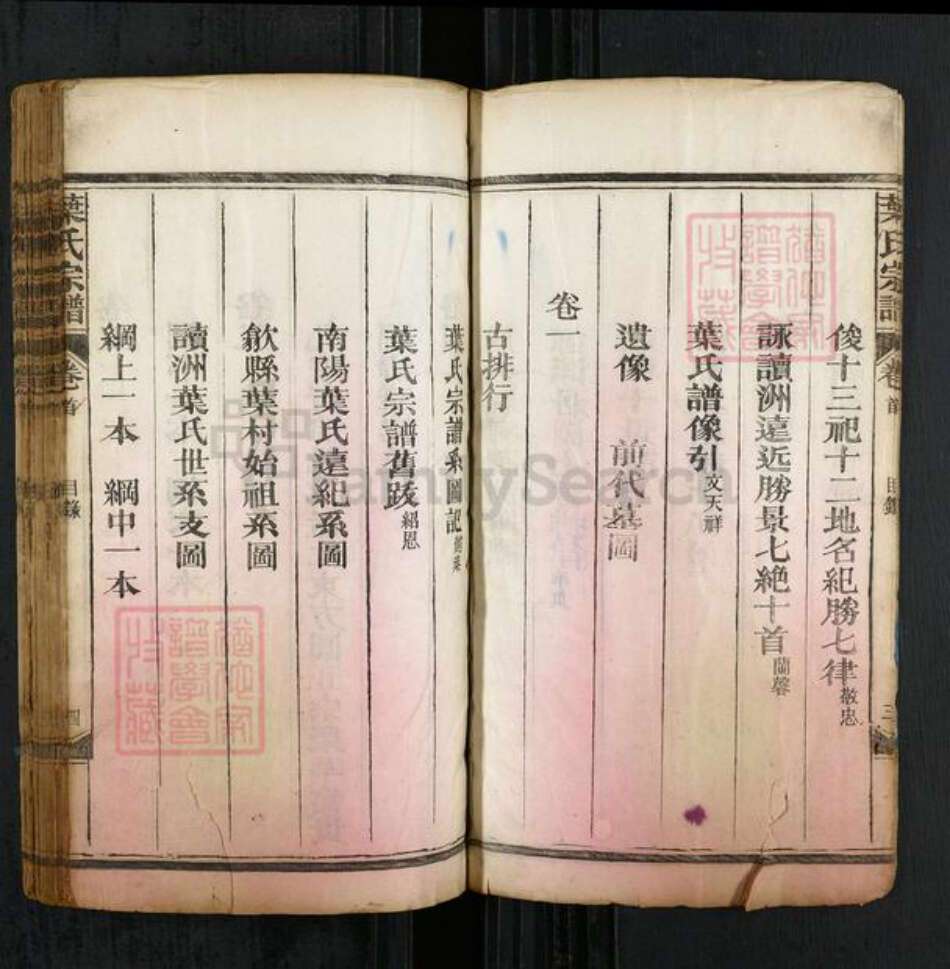 葉氏宗譜 卷首 目錄 三
俊十三祀十二地名紀勝七律 敬忠
詠讀洲遠近勝景七絶十首 蘭馨
葉氏譜像引 文天祥
遺像 前代墓圖
卷一
古排行
葉氏宗譜系圖記
葉氏宗譜舊跋 紹恩
南陽葉氏遠紀系圖
歙縣葉村始祖系圖
讀洲葉氏世系支圖
綱上一本 綱中一本
葉氏宗譜 卷首 目錄 四
譜學會
收藏
譜學會
收藏
FamilySearch